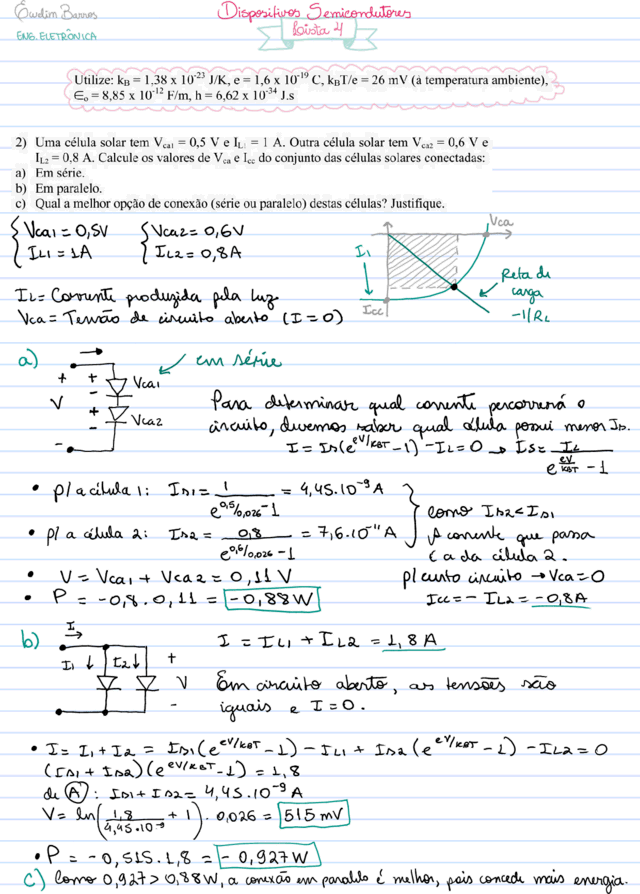 Ewelim Barros
ENG. ELETRÔNICA
Dispositivos Semicondutores
Lista 4
Utilize: k_B = 1,38 x 10⁻²³ J/K, e = 1,6 x 10⁻¹⁹ C, k_BT/e = 26 mV (à temperatura ambiente),
∈₀ = 8,85 x 10⁻¹² F/m, h = 6,62 x 10⁻³⁴ J.s
2) Uma célula solar tem V_ca1 = 0,5 V e I_L1 = 1 A. Outra célula solar tem V_ca2 = 0,6 V e
I_L2 = 0,8 A. Calcule os valores de V_ca e I_cc do conjunto das células solares conectadas:
a) Em série.
b) Em paralelo.
c) Qual a melhor opção de conexão (série ou paralelo) destas células? Justifique.
{ Vca1 = 0,5V { Vca2 = 0,6V
IL1 = 1A IL2 = 0,8A
Vca
I₁
Icc
Reta de
carga
-1/RL
IL = Corrente produzida pela luz
Vca = Tensão de circuito aberto (I=0)
a) em série
+ + Vca1
V -
+ Vca2
- -
Para determinar qual corrente percorrerá o
circuito, devemos saber qual célula possui menor Is.
I = Is(e^{eV/KBT} - 1) - IL = 0 → Is = IL / (e^{eV/KBT} - 1)
• p/ a célula 1: Is1 = 1 / (e^{0,5/0,026} - 1) = 4,45.10⁻⁹ A
• p/ a célula 2: Is2 = 0,8 / (e^{0,6/0,026} - 1) = 7,6.10⁻¹¹ A
} como Is2 < Is1
A corrente que passa
é a da célula 2.
• V = Vca1 + Vca2 = 0,11 V
p/ curto circuito → Vca = 0
• P = -0,8 . 0,11 = -0,88W
Icc = - IL2 = -0,8A
b) I
I₁ ↓ I2 ↓ +
V
-
I = IL1 + IL2 = 1,8 A
Em circuito aberto, as tensões são
iguais e I = 0.
• I = I1 + I2 = Is1(e^{eV/KBT} - 1) - IL1 + Is2(e^{eV/KBT} - 1) - IL2 = 0
(Is1 + Is2)(e^{eV/KBT} - 1) = 1,8
de (A): Is1 + Is2 = 4,45.10⁻⁹ A
V = ln(1,8 / 4,45.10⁻⁹ + 1) . 0,026 = 515 mV
• P = -0,515 . 1,8 = -0,927W
c) Como 0,927 > 0,88W, a conexão em paralelo é melhor, pois concede mais energia.